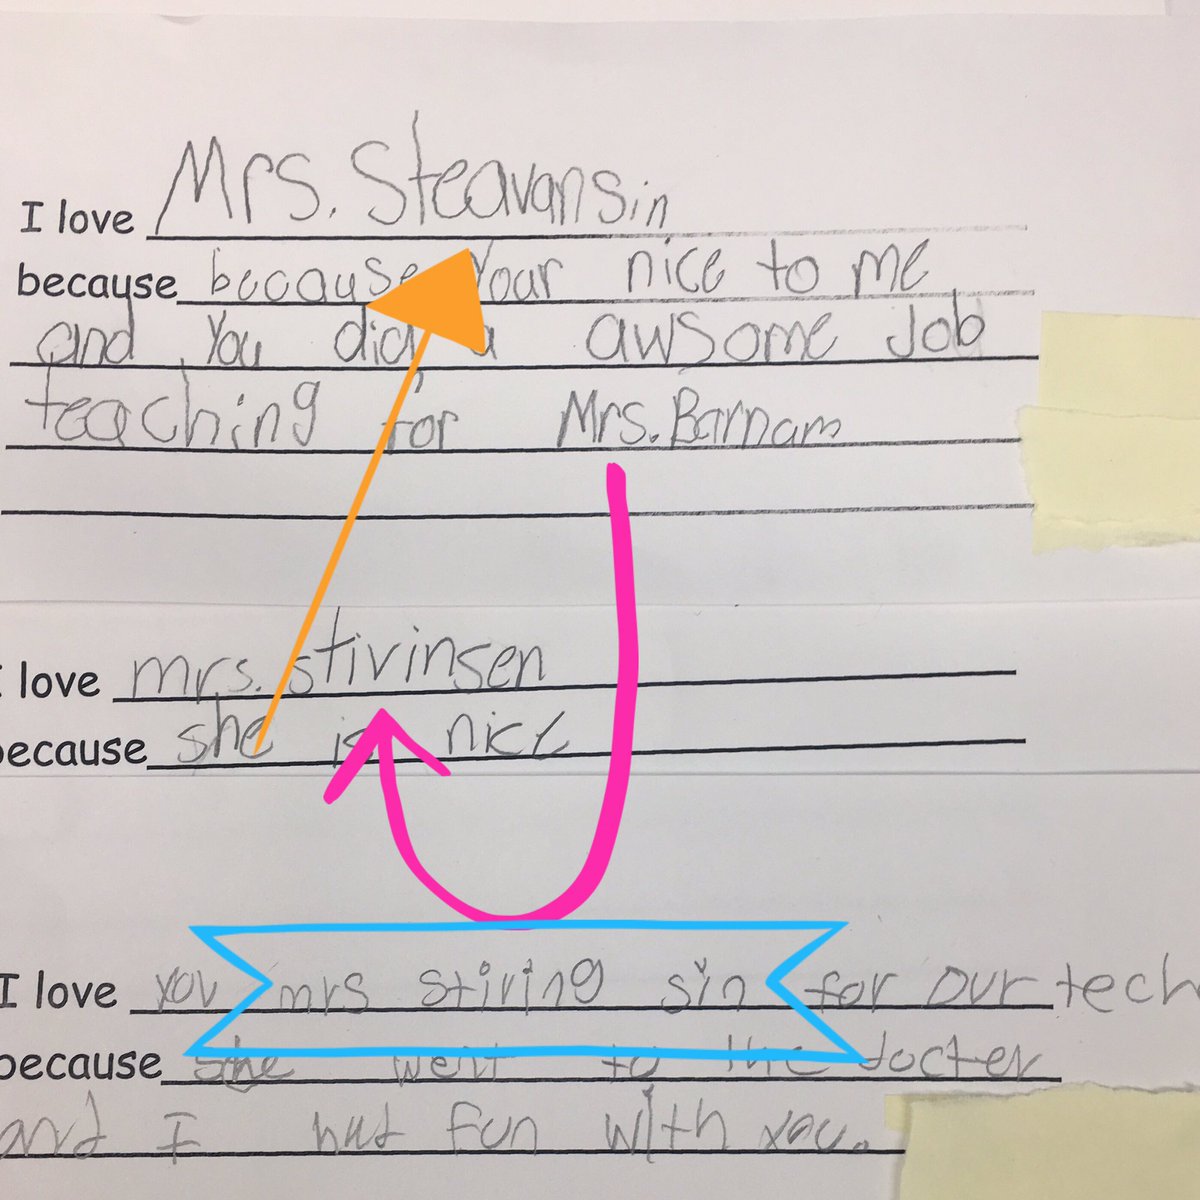 I love Mrs. Steavansin
because because your nice to me
and you did a awsome Job
teaching for Mrs. Barnam
I love mrs. stivinsen
because she is nice
I love you mrs stiring sin for our tech
because she went to the docter
and I hat fun with you.